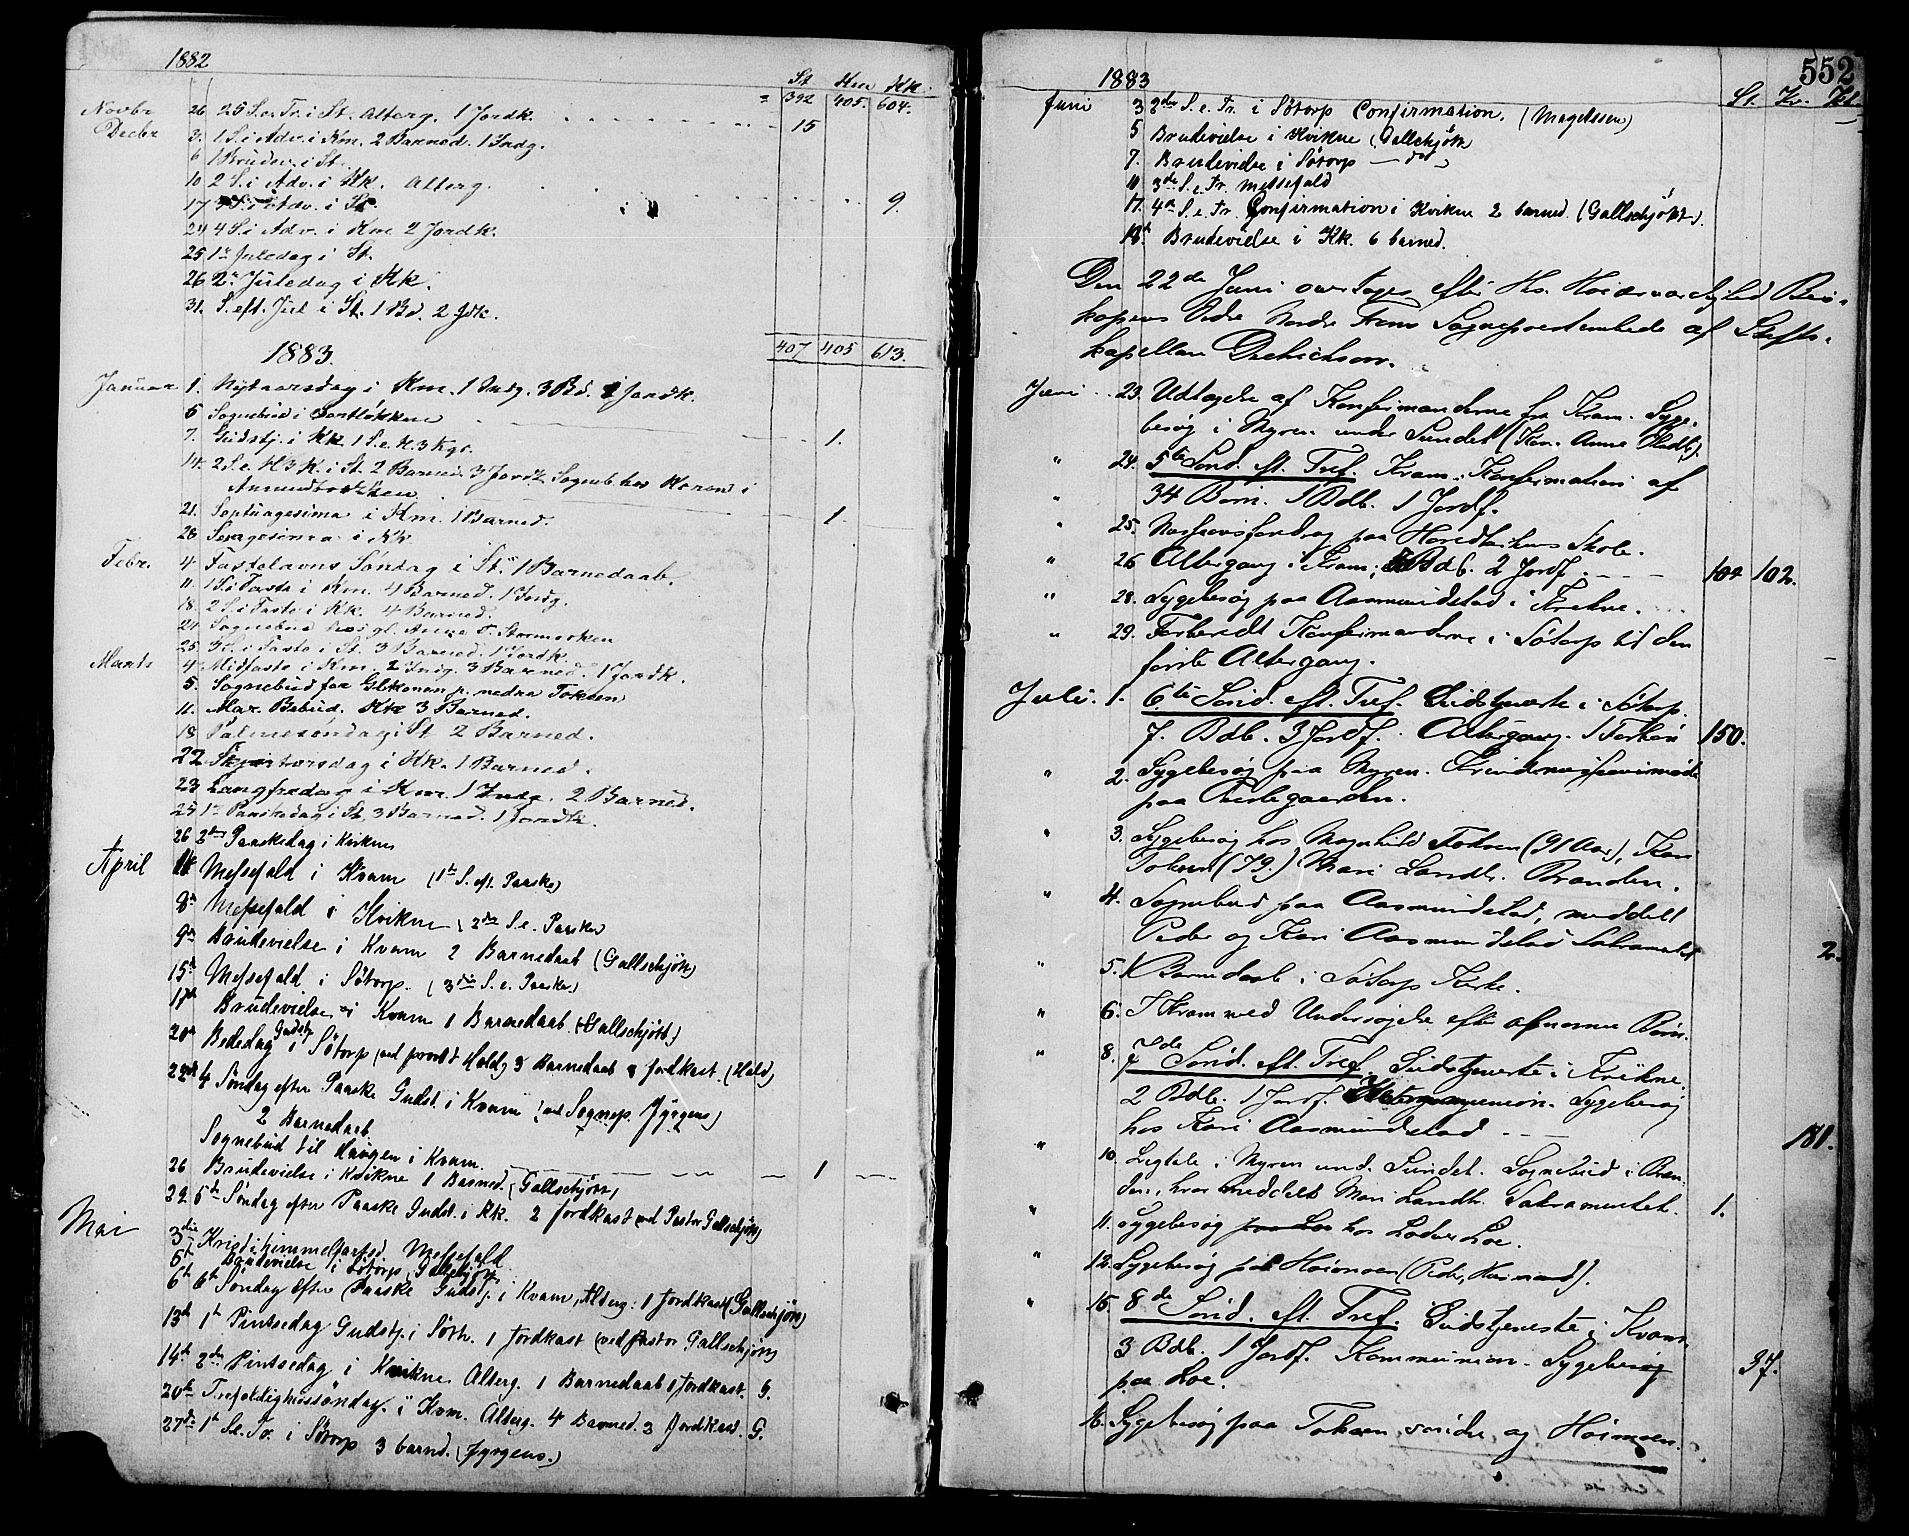 1882
St Km Kk.
Novbr 26 25 S. e. Tr. i St. Alterg. 1 Jordk. = 392 405. 604.
Decbr 3. 1 S. i Adv. i Km. 2 Barned. 1 Indg. 15
6 1 Brudev. i St.
10 2 S. i Adv. i Kk. Alterg. 9.
17 3 S. i Adv. i St.
24 4 S. i Adv. i Km 2 Jordk.
25 1ste Juledag i St.
26 2n Juledag i Kk.
31. S. eft. Jul i St. 1 Bd. 2 Jdk.
407 405 613.
1883.
Januar 1. Nytaarsdag i Km. 1 Indg. 3 Bd. 1 Jordk.
5 Sognebud i
7. Gudstj. i Kk 1 S. e. H. 3 Kgr. 1.
14. 2 S. e. H 3 K. i St. 2 Barned. 3 Jordk. Sogneb. hos Karen i
21. Septuagesima i Km. 1 Barned. 1.
28 Sexagesima i Kk
Febr. 4. Fastelavns Søndag i St. 1 Barnedaab.
11. 1 S. i Faste i Km. 4 Barned. 1 Indg.
18. 2 S. i Faste i Kk. 4 Barned.
24. Sognebud hos gl. Anne
25. 3 S. i Faste i St. 3 Barned. 1 Jordk.
Marts 4. Midfaste i Km. 2 Indg. 3 Barned. 1 Jordk.
5. Sognebud for nedre Toksen
11. Mar. Bebud. Kk 3 Barned.
18 Palmesøndag i St 2 Barned.
22 Skjærtorsdag i Kk. 1 Barned.
23 Langfredag i Km. 1 Indg. 2 Barned.
25 1ste Paaskedag i St. 3 Barned. 1 Jordk.
26 2den Paaskedag i Kvikne
April 1ste Messefald i Kvam (1ste S. eft. Paaske)
8de Messefald i Kvikne (2den S. e. Paaske)
9de Brudevielse i Kvam 2 Barnedaab (Gallschjøtt)
15de Messefald i Sötorp. (3die S. e. Paaske.)
17de Brudevielse i Kvam 1 Barnedaab (Gallschjøtt.)
20de Bededag Gudstj. i Sötorp (ved provst Hald) 3 Barnedaab jordkast. (Hald)
22de 4 Söndag efter Paaske Gudst. i Kvam (ved Sognep. Jÿrgens)
2 Barnedaab.
Sognebud til Haugen i Kvam. 1
26 Brudevielse i Kvikne 1 Barned. (Gallschjøtt)
29. 5te Söndag efter Paaske Gudst. i Kk. 2 jordkast ved Pastor Gallschjøtt)
Mai 3die Kristi himmelfartsd. Messefald
5te Brudevielse i Sötorp (Gallschjøtt)
6te 6te Söndag efter Paaske Gudstj. i Kvam, Alterg: 1 Jordkast (Gallschjøtt)
13de 1ste Pintsedag Gudstj. i Söth. 1 Jordkast (ved Pastor Gallschjøtt)
14de 2den Pintsedag i Kvikne Alterg. 1 Barnedaab 1 Jordkast. G.
20de Trefoldighedssöndag. i Kvm. Alterg. 4 Barned. 2 Jordkast. G.
27de 1ste S. e. Tr. i Sötorp 3 barnd. (Jÿrgens.)
552
1883
St. Kv. Kk.
Juni 3 2den S. e. Tr. i Sötorp Confirmation. (Magelssen)
5 Brudevielse i Kvikne (Gallschjøtt
7. Brudevielse i Sötorp — do —
10 3de S. e. Tr. Messefald
17. 4de S. e. Tr. Confirmation i Kvikne 2 barned. (Gallschjøtt).
18de Brudevielse i Kk. 6 barned.
Den 22de Juni overtoges efter Hs. Höiærværdighed Bis-
kopens Ordre Nordre Frons Sognepræstembede af Stifts-
kapellan Diedrichson.
Juni 23. Udtagelse af Konfirmanderne fra Kvam. Syge-
besøg i Myren under Sundet
" 24. 5te Sönd. eft. Tref. Kvam. Konfirmation af
" 34 Börn. 1 Bdb. 1 Jordf.
" 25. paa Skole.
" 26 Altergang i Kvam; Bdb. 2 Jordf. 104 102.
" 28. Sygebesøg paa Aasmundstad i Kvikne.
" 29. Forberedt Konfirmanderne i Sötorp til den
förste Altergang.
Juli 1. 6te Sönd. eft. Tref. Gudstjeneste i Sötorp.
7. Bdb. 3 Jordf. Altergang. 150.
" 2. Sygebesøg paa Myren.
paa Prestegaarden.
" 3. Sygebesøg hos Magnhild Toksen (91 Aar), Kari
Toksen (79.) Mari Landh. Branden.
" 4. Sognebud paa Aasmundstad, meddelt
Peder og Kari Aasmundstad Sakramentet 2.
" 5. 1 Barnedaab i Sötorp Kirke.
" 6. I Kvam ved Undersögelse efter Börn.
" 8. 7de Sönd. eft. Tref. Gudstjeneste i Kvikne.
2 Bdb. 1 Jordf. Sygebesøg
hos Kari Aasmundstad 181.
" 10. Ligtale i Myren und. Sundet. Sognebud i Bran-
den, hvor meddelt Mari Landh. Sakramentet. 1.
" 11. Sygebesøg paa Loe hos Loe.
" 12. Sygebesøg paa Höimoen
" 15. 8de Sönd. eft. Tref. Gudstjeneste i Kvam.
3 Bdb. 1 Jordf. Kommunion. Sygebesøg
paa Loe. 37.
16. Sygebesøg paa Toksen söndre og Höimoen.